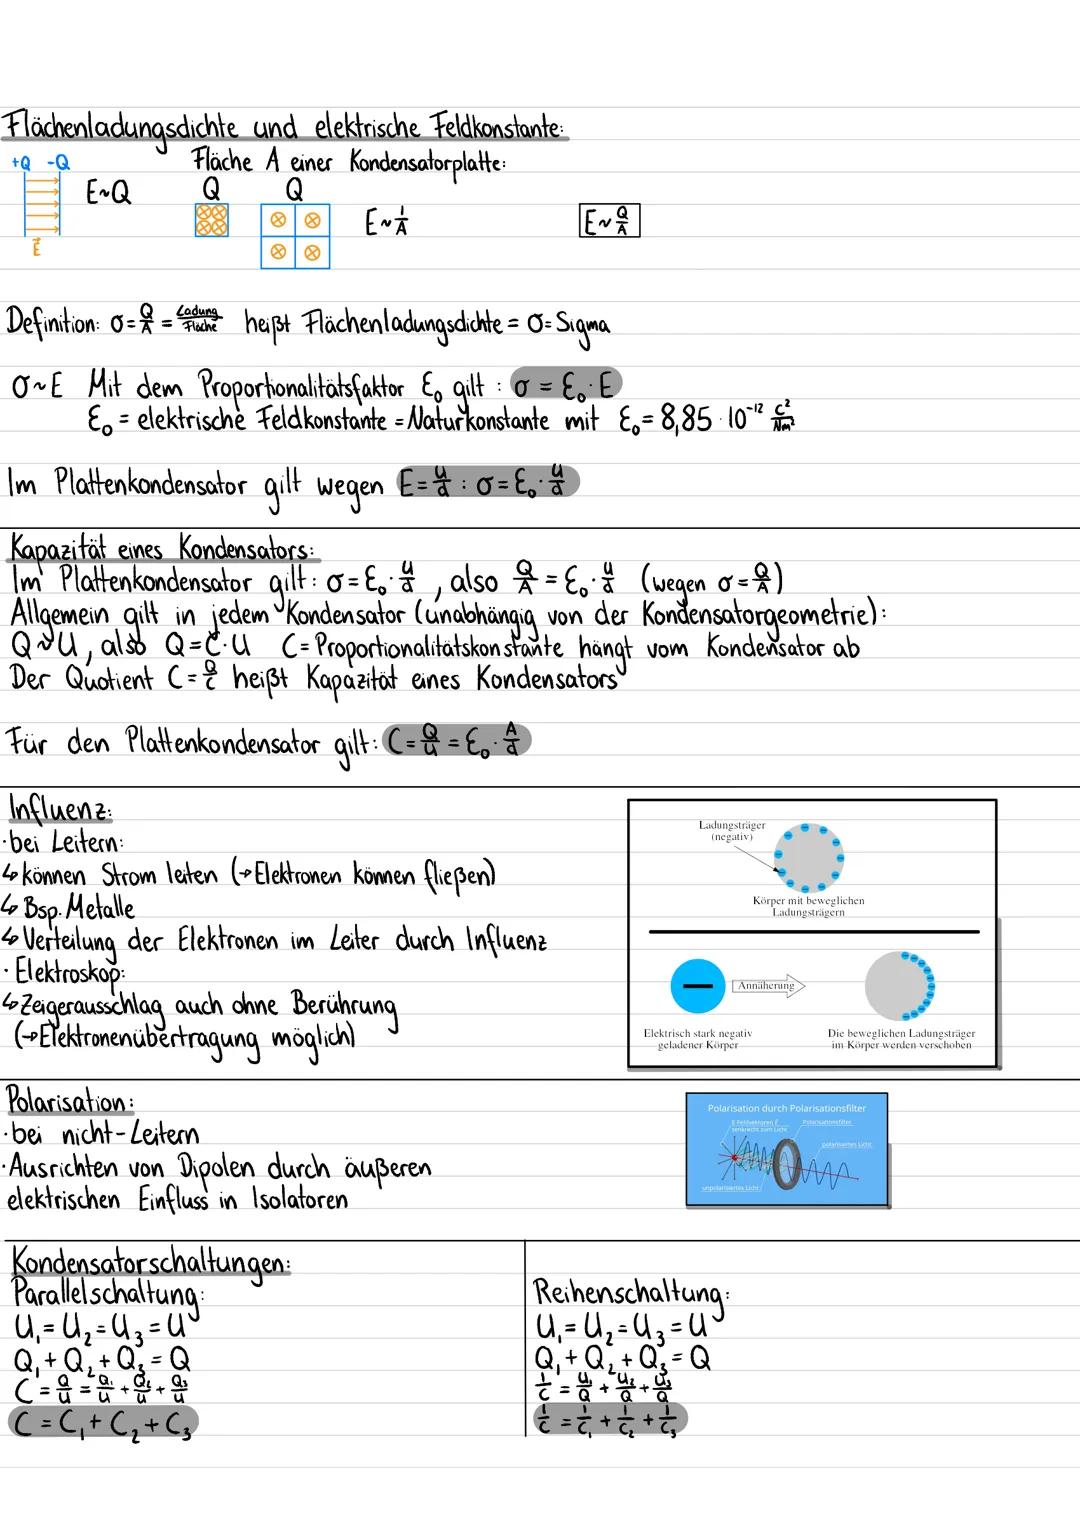 Flächenladungsdichte und elektrische Feldkonstante:
+Q -Q
Fläche A einer Kondensatorplatte:
E~Q
Q Q
E~1/A
E~Q/A
E⃗
Definition: σ=Q/A = Ladung/Fläche heißt Flächenladungsdichte = σ=Sigma
σ~E Mit dem Proportionalitätsfaktor ε₀ gilt : σ = ε₀·E
ε₀ = elektrische Feldkonstante = Naturkonstante mit ε₀= 8,85 · 10⁻¹² C²/Nm²
Im Plattenkondensator gilt wegen E=U/d : σ=ε₀·U/d
Kapazität eines Kondensators:
Im Plattenkondensator gilt: σ=ε₀·U/d , also Q/A = ε₀·U/d (wegen σ=Q/A)
Allgemein gilt in jedem Kondensator (unabhängig von der Kondensatorgeometrie):
Q~U, also Q=C·U C=Proportionalitätskonstante hängt vom Kondensator ab
Der Quotient C=Q/C heißt Kapazität eines Kondensators
Für den Plattenkondensator gilt: C=Q/U = ε₀·A/d
Influenz:
·bei Leitern:
↳können Strom leiten (→Elektronen können fließen)
↳Bsp. Metalle
↳Verteilung der Elektronen im Leiter durch Influenz
·Elektroskop:
↳Zeigerausschlag auch ohne Berührung
(→Elektronenübertragung möglich)
Ladungsträger
(negativ)
Körper mit beweglichen
Ladungsträgern
Annäherung
Elektrisch stark negativ
geladener Körper
Die beweglichen Ladungsträger
im Körper werden verschoben
Polarisation:
·bei nicht-Leitern
·Ausrichten von Dipolen durch äußeren
elektrischen Einfluss in Isolatoren
Polarisation durch Polarisationsfilter
senkrecht zum Licht
Polarisationsfilter
polarisiertes Licht
unpolarisiertes Licht
Kondensatorschaltungen:
Parallelschaltung:
U₁=U₂=U₃=U
Q₁+Q₂+Q₃=Q
C=Q/U=Q₁/U+Q₂/U+Q₃/U
C=C₁+C₂+C₃
Reihenschaltung:
U₁=U₂=U₃=U
Q₁+Q₂+Q₃=Q
1/C=U₁/Q+U₂/Q+U₃/Q
1/C=1/C₁+1/C₂+1/C₃